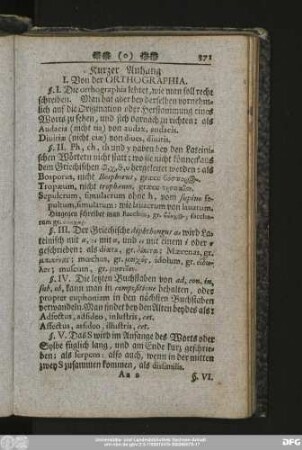 (o) 371
Kurzer Anhang
I. Von der ORTHOGRAPHIA.
§. I. Die orthographia lehret, wie man soll recht
schreiben. Man hat aber bey derselben vornehm-
lich auf die Origination oder Herstammung eines
Worts zu sehen, und sich darnach zu richten: als
Audacia (nicht tia) von audax, audacis.
Divitiæ (nicht ciæ) von dives, divitis.
§. II. Ph, ch, th und y haben bey den Lateini-
schen Wörtern nicht statt: wo sie nicht können aus
dem Griechischen hergeleitet werden: als
Bosporus, nicht Bosphorus, græce
Tropæum, nicht trophæum, græce
Sepulcrum, simulacrum ohne h, vom supino se-
pultum, simulatum: wie lavacrum von lavatum.
Hingegen schreibe man Bacchus, gr.
rum gr.
§. III. Der Griechische diphthongus wird La-
teinisch mit mit und mit einem i oder e
geschrieben: als gr. Mæcenas, gr.
mœchus, gr. idolum, gr.
museum, gr.
§. IV. Die letzten Buchstaben von ad, con, in,
sub, ob, kann man in compositione behalten, oder
propter euphoniam in den nächsten Buchstaben
verwandeln. Man findet bey den Alten beydes als:
Adfectus, adsideo, inlustris, cet.
Affectus, assideo, illustris, cet.
§. V. Das S wird im Anfange des Worts oder
Sylbe füglich lang, und am Ende kurz geschrie-
ben: als also auch, wenn in der mitten
zwey S zusammen kommen, als dissimilis.
Aa 2 §. VI.